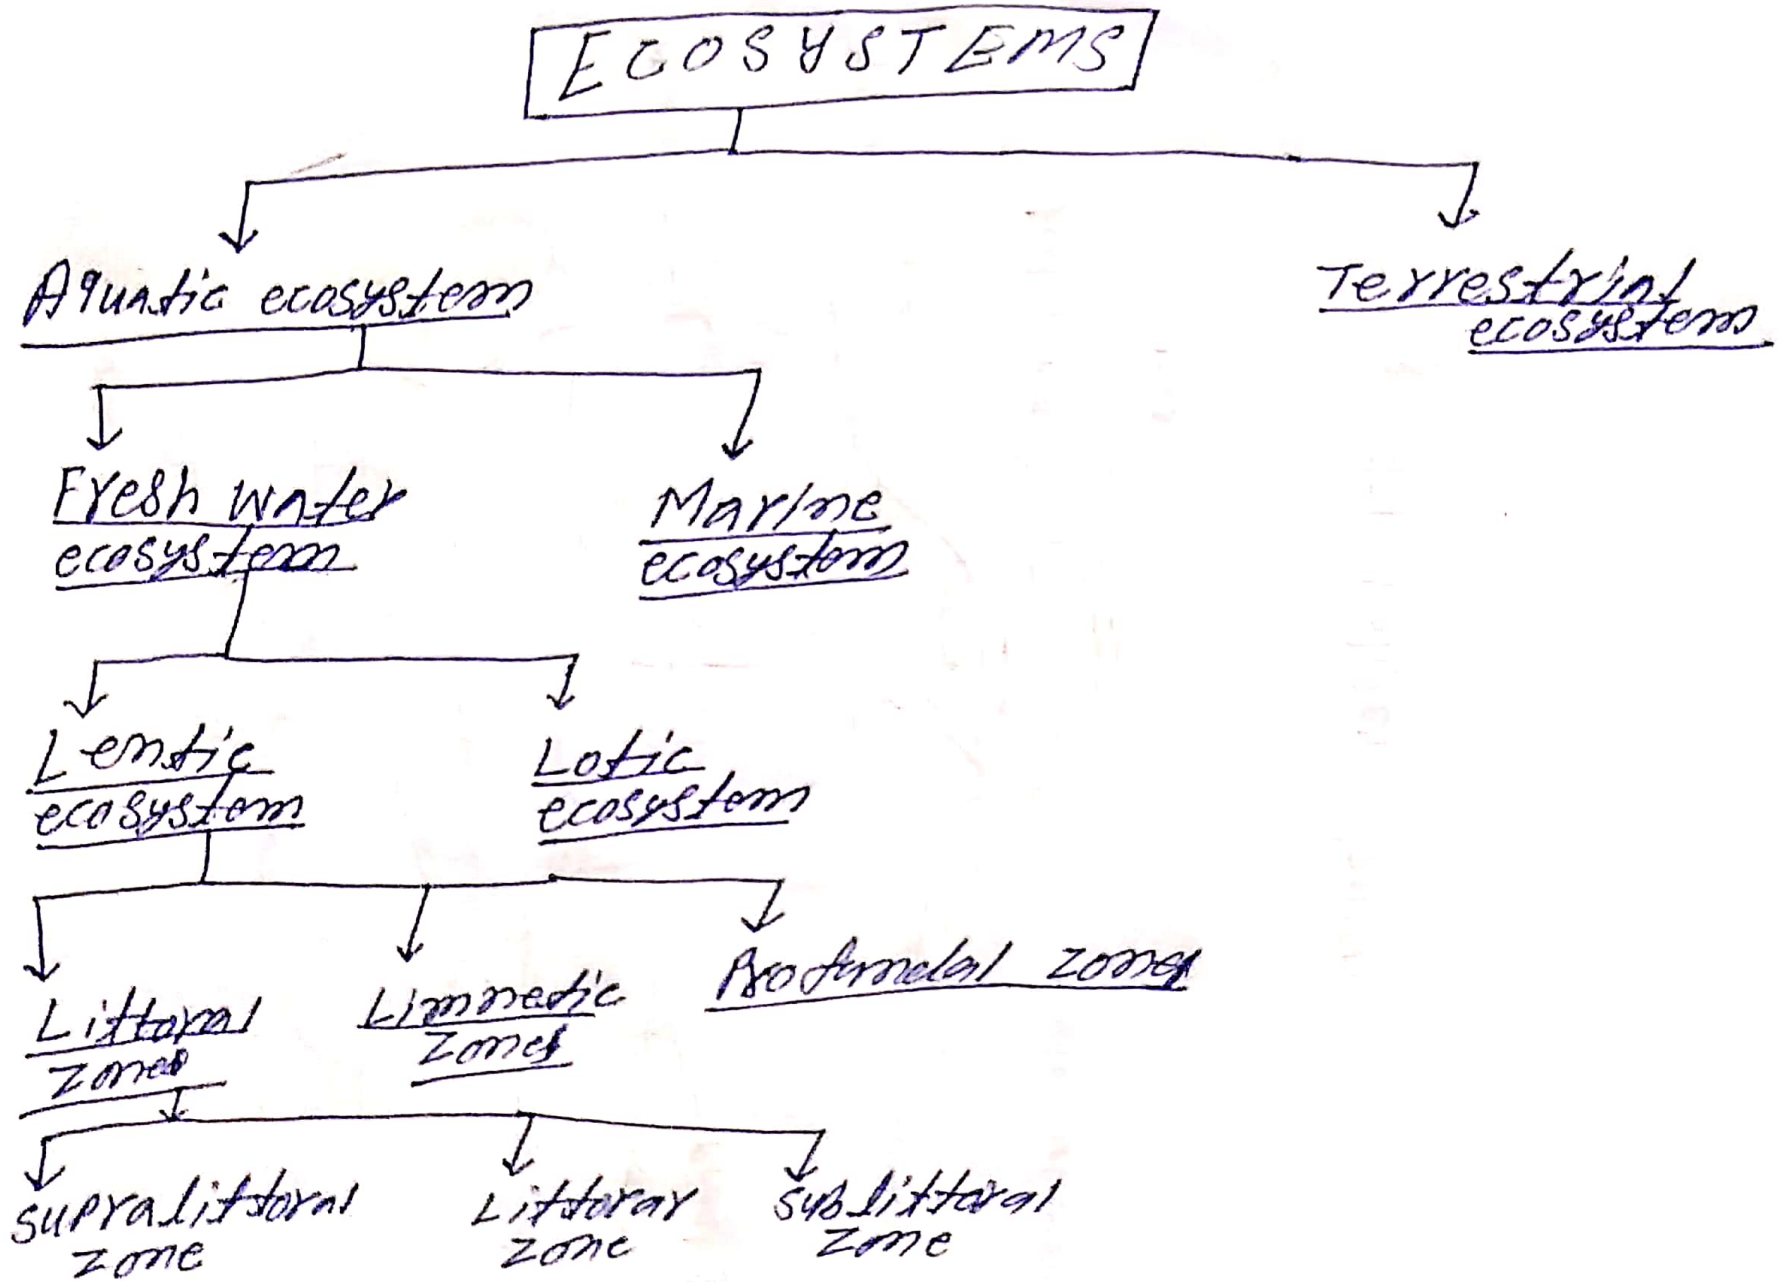 ECOSYSTEMS
Aquatic ecosystem
Terrestrial
ecosystem
Fresh water
ecosystem
Marine
ecosystem
Lentic
ecosystem
Lotic
ecosystem
Littoral
zones
Limnetic
zones
Profundal zones
supralittoral
zone
Littorar
zone
sublittoral
zone